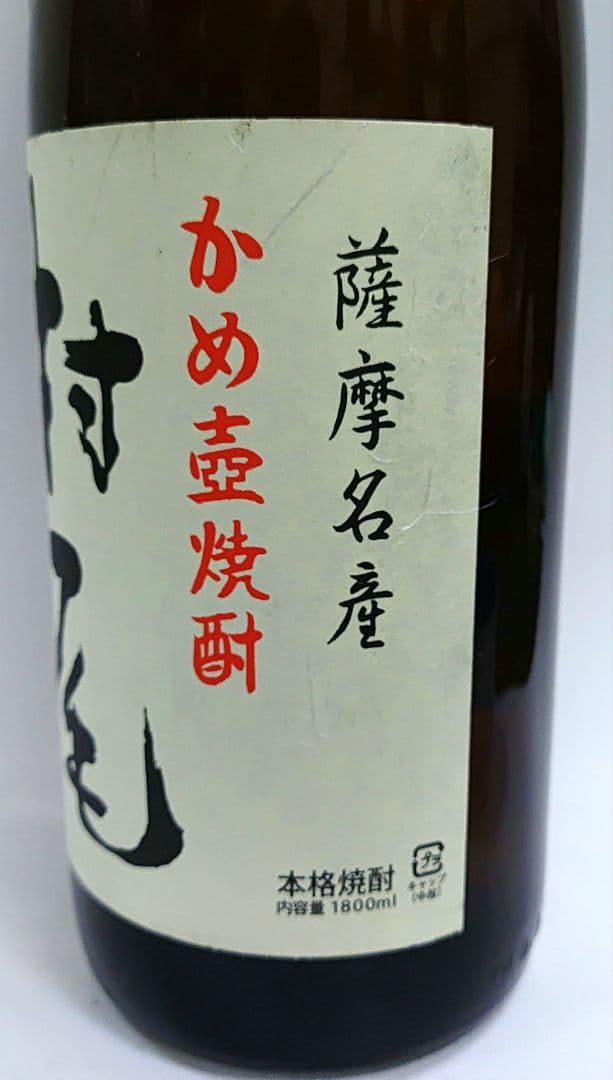 薩摩名産
かめ壺焼酎
村尾
本格焼酎
内容量 1800ml
プラ
キャップ